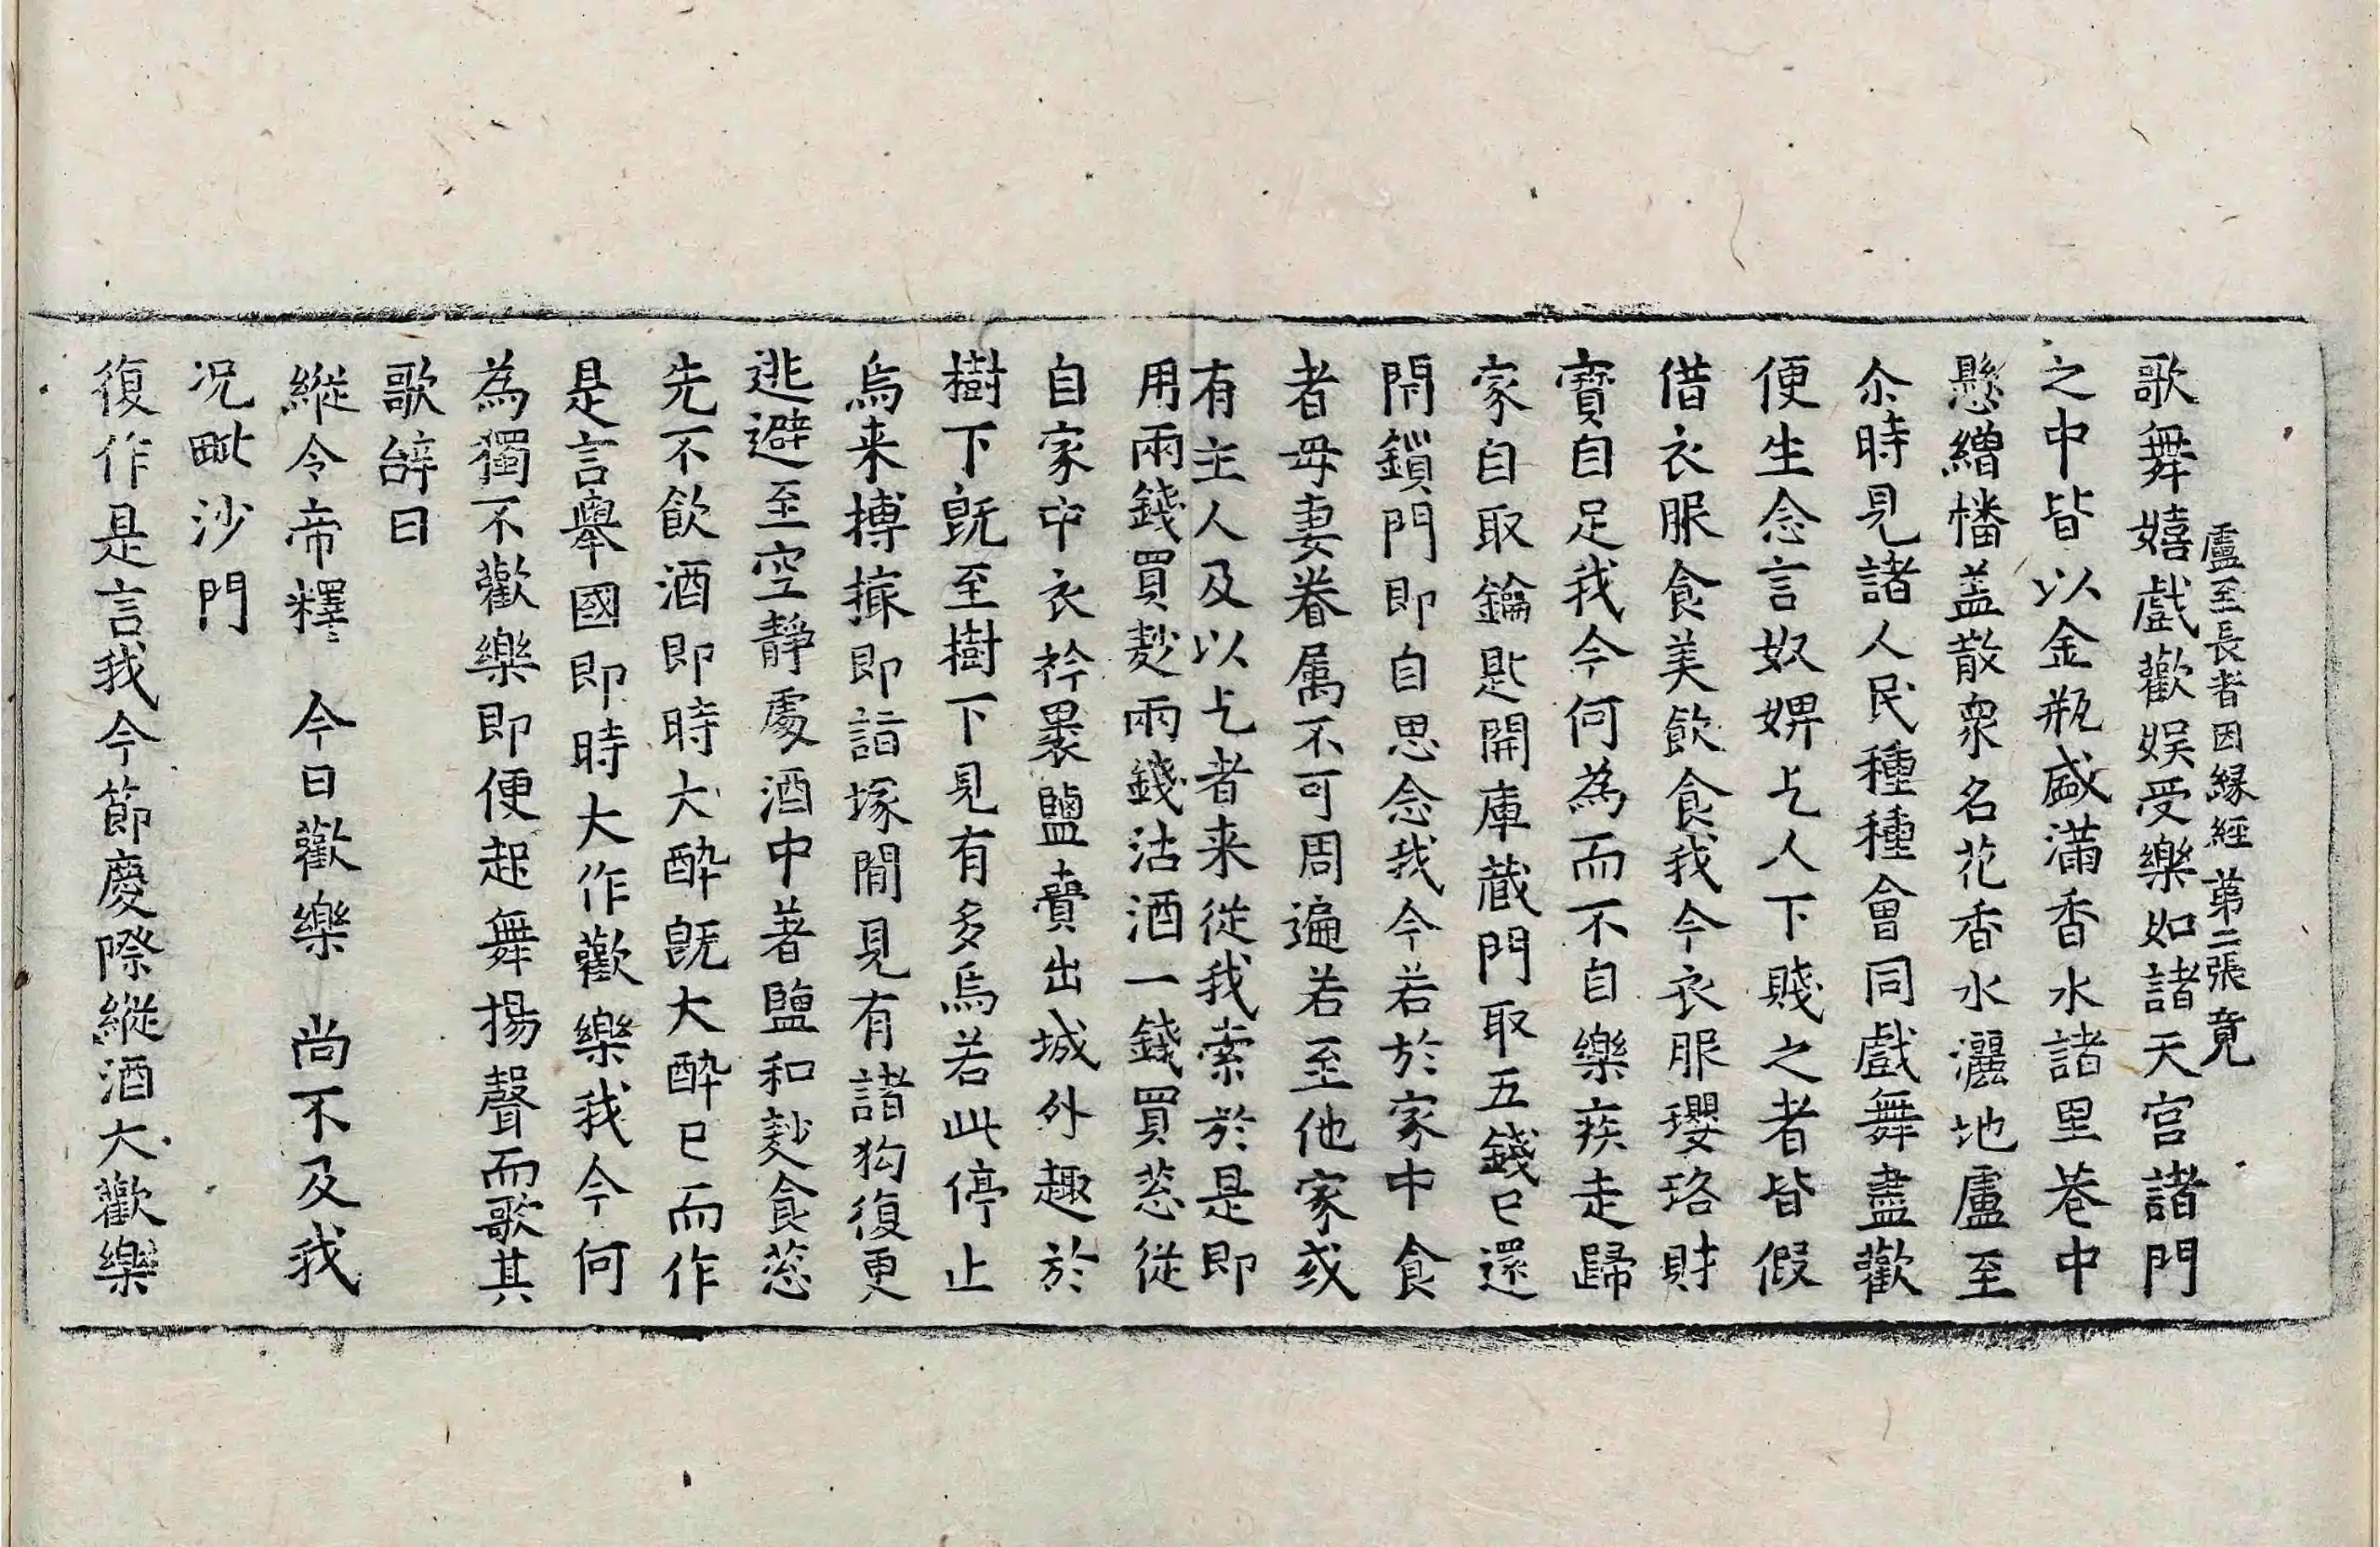 盧至長者因縁經 第二張 竟
歌舞嬉戲歡娯受樂如諸天宮諸門
之中皆以金瓶盛滿香水諸里巷中
懸繒幡盖散衆名花香水灑地盧至
尒時見諸人民種種會同戲舞盡歡
便生念言奴婢乞人下賤之者皆假
借衣服食美飲食我今衣服瓔珞財
寶自足我今何為而不自樂疾走歸
家自取鑰匙開庫蔵門取五錢已還
閇鎖門即自思念我今若於家中食
者母妻眷属不可周遍若至他家或
有主人及以乞者来從我索於是即
用兩錢買麨兩錢沽酒一錢買葱從
自家中衣衿裹鹽賷出城外趣於
樹下既至樹下見有多烏若此停止
烏来搏撮即詣塚間見有諸狗復更
逃避至空靜處酒中著鹽和麨食葱
先不飲酒即時大醉既大醉已而作
是言舉國即時大作歡樂我今何
為獨不歡樂即便起舞揚聲而歌其
歌辝曰
縱令帝釋 今日歡樂 尚不及我
况毗沙門
復作是言我今節慶際縱酒大歡樂